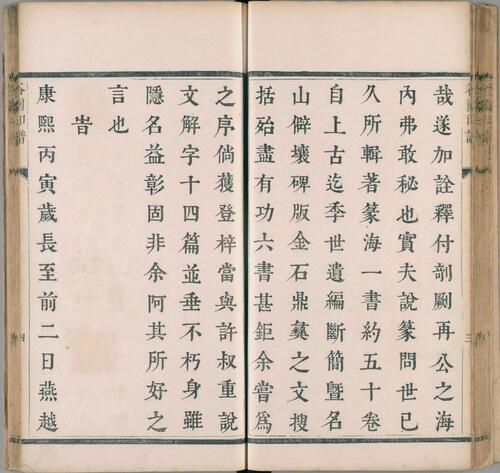 哉遂加詮釋付剞劂再公之海
內弗敢秘也實夫說篆問世已
久所輯著篆海一書約五十卷
自上古迄季世遺編斷簡暨名
山僻壤碑版金石鼎彝之文搜
括殆盡有功六書甚鉅余嘗爲
三
之序倘獲登梓當與許叔重說
文解字十四篇並垂不朽身雖
隱名益彰固非余阿其所好之
言也
旹
康熙丙寅歲長至前二日燕越
四